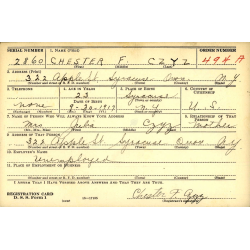 SERIAL NUMBER 1. NAME (Print) ORDER NUMBER
2860 CHESTER F. CZYZ 494 A
2. ADDRESS (Print)
322 Apple St. Syracuse Onon. N.Y.
3. TELEPHONE 4. AGE IN YEARS 5. PLACE OF BIRTH 6. COUNTRY OF CITIZENSHIP
23 Syracuse
none DATE OF BIRTH N.Y. U.S.
7. NAME OF PERSON WHO WILL ALWAYS KNOW YOUR ADDRESS 8. RELATIONSHIP OF THAT PERSON
Mrs Czyz mother
9. ADDRESS OF THAT PERSON
322 Apple St. Syracuse Onon N.Y.
10. EMPLOYER'S NAME
Unemployed
11. PLACE OF EMPLOYMENT OR BUSINESS
I AFFIRM THAT I HAVE VERIFIED ABOVE ANSWERS AND THAT THEY ARE TRUE.
REGISTRATION CARD
D. S. S. Form 1 Chester F. Czyz